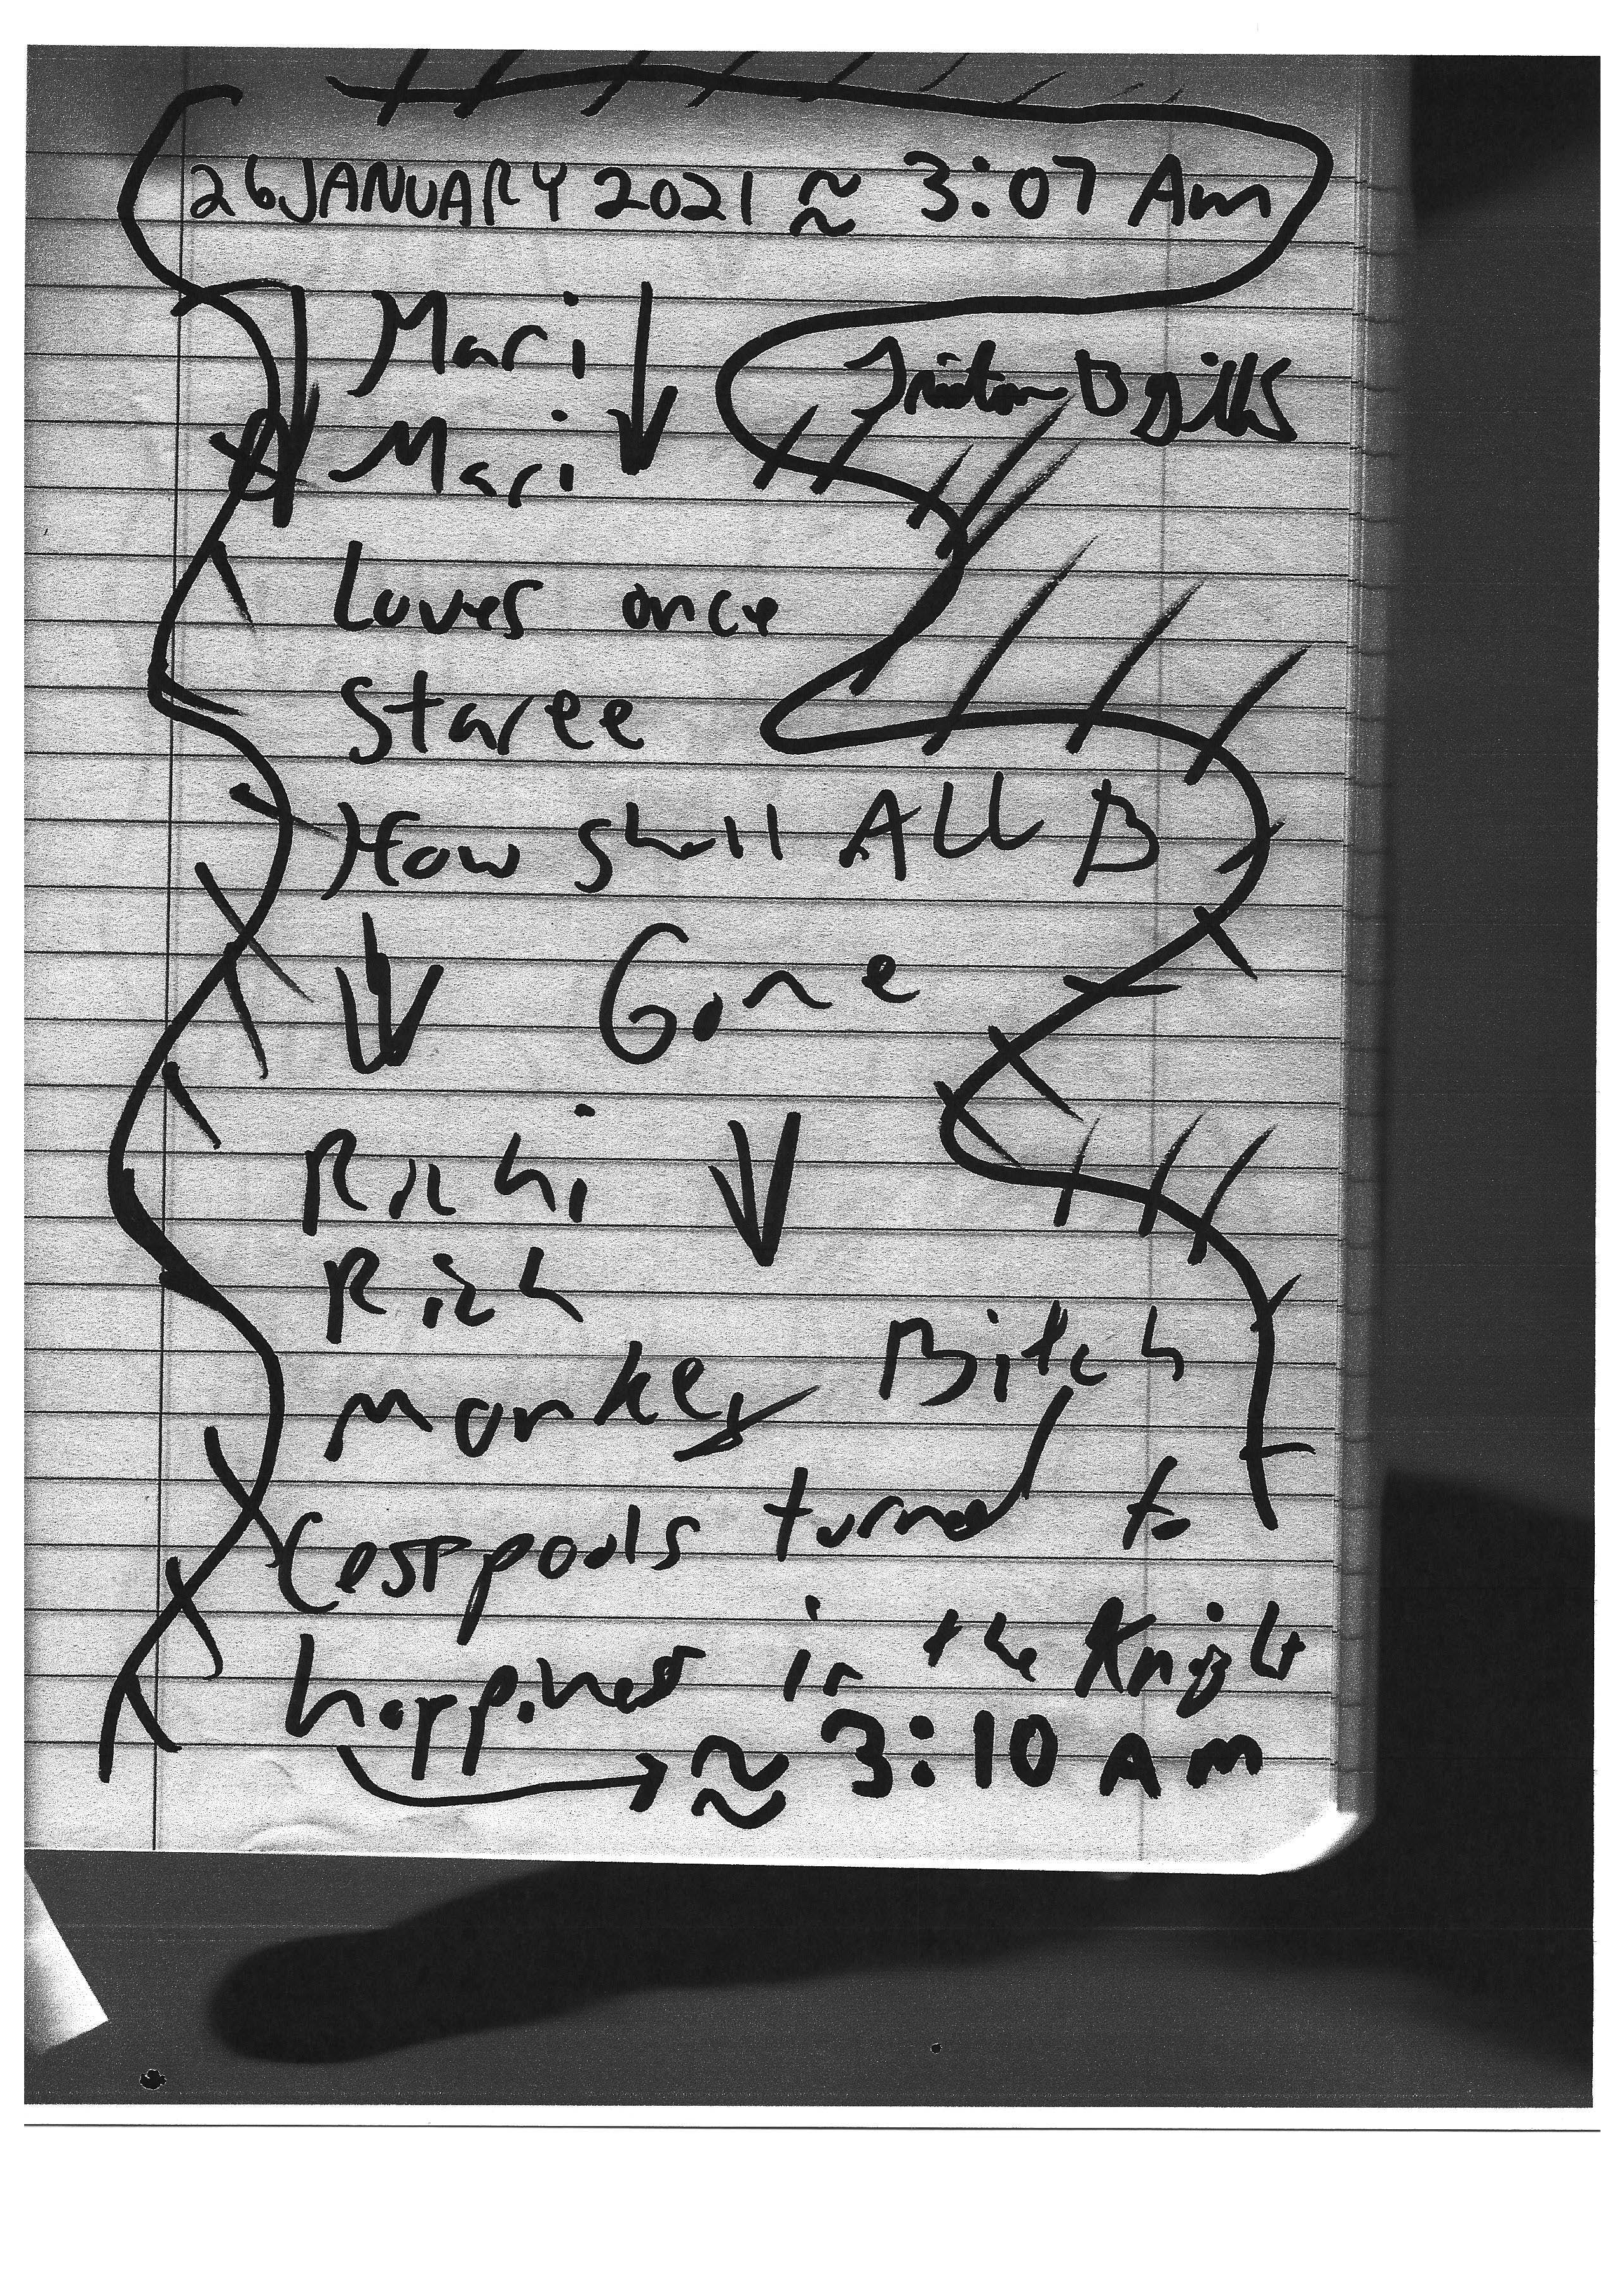 26 JANUARY 2021 ≈ 3:07 Am
Mari
Mari
Loves once
Staree
How shall ALL B
Gone
Richi
Rich
monkey Bitch
Cesspools turned to
happiness in the Knight
≈ 3:10 Am